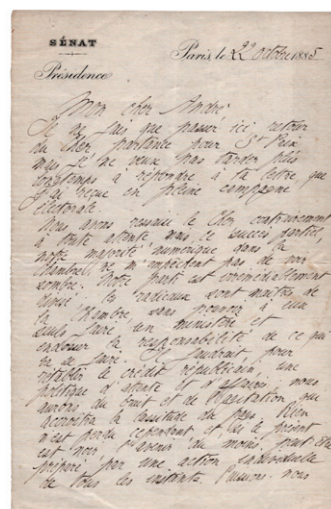 SÉNAT
Présidence
Paris, le 22 octobre 1885
Mon cher André
Je ne fais que passer ici retour
du Cher partante pour St
mais je ne veux pas tarder plus
longtemps à répondre à ta lettre que
j'ai reçue en pleine campagne
électorale.
Nous avons ressaisi le Cher contrairement
à toute attente mais ce succès partiel,
notre majorité numérique dans la
Chambre, ne m'empêchent pas de voir
sombre. Notre parti est irrémédiablement
les radicaux sont maîtres de
la Chambre sans pouvoir à eux
seuls faire un ministère et
endosser la responsabilité de ce qui
va se faire. Il faudrait pour
rétablir le crédit républicain, une
politique d'attente et d'affaires, nous
aurons du bruit et de l'agitation, que
accroîtra la lassitude du pays. Rien
n'est perdu cependant et si le présent
est noir, l'avenir du moins peut être
préparé par une action individuelle
de tous les instants. Puissions-nous